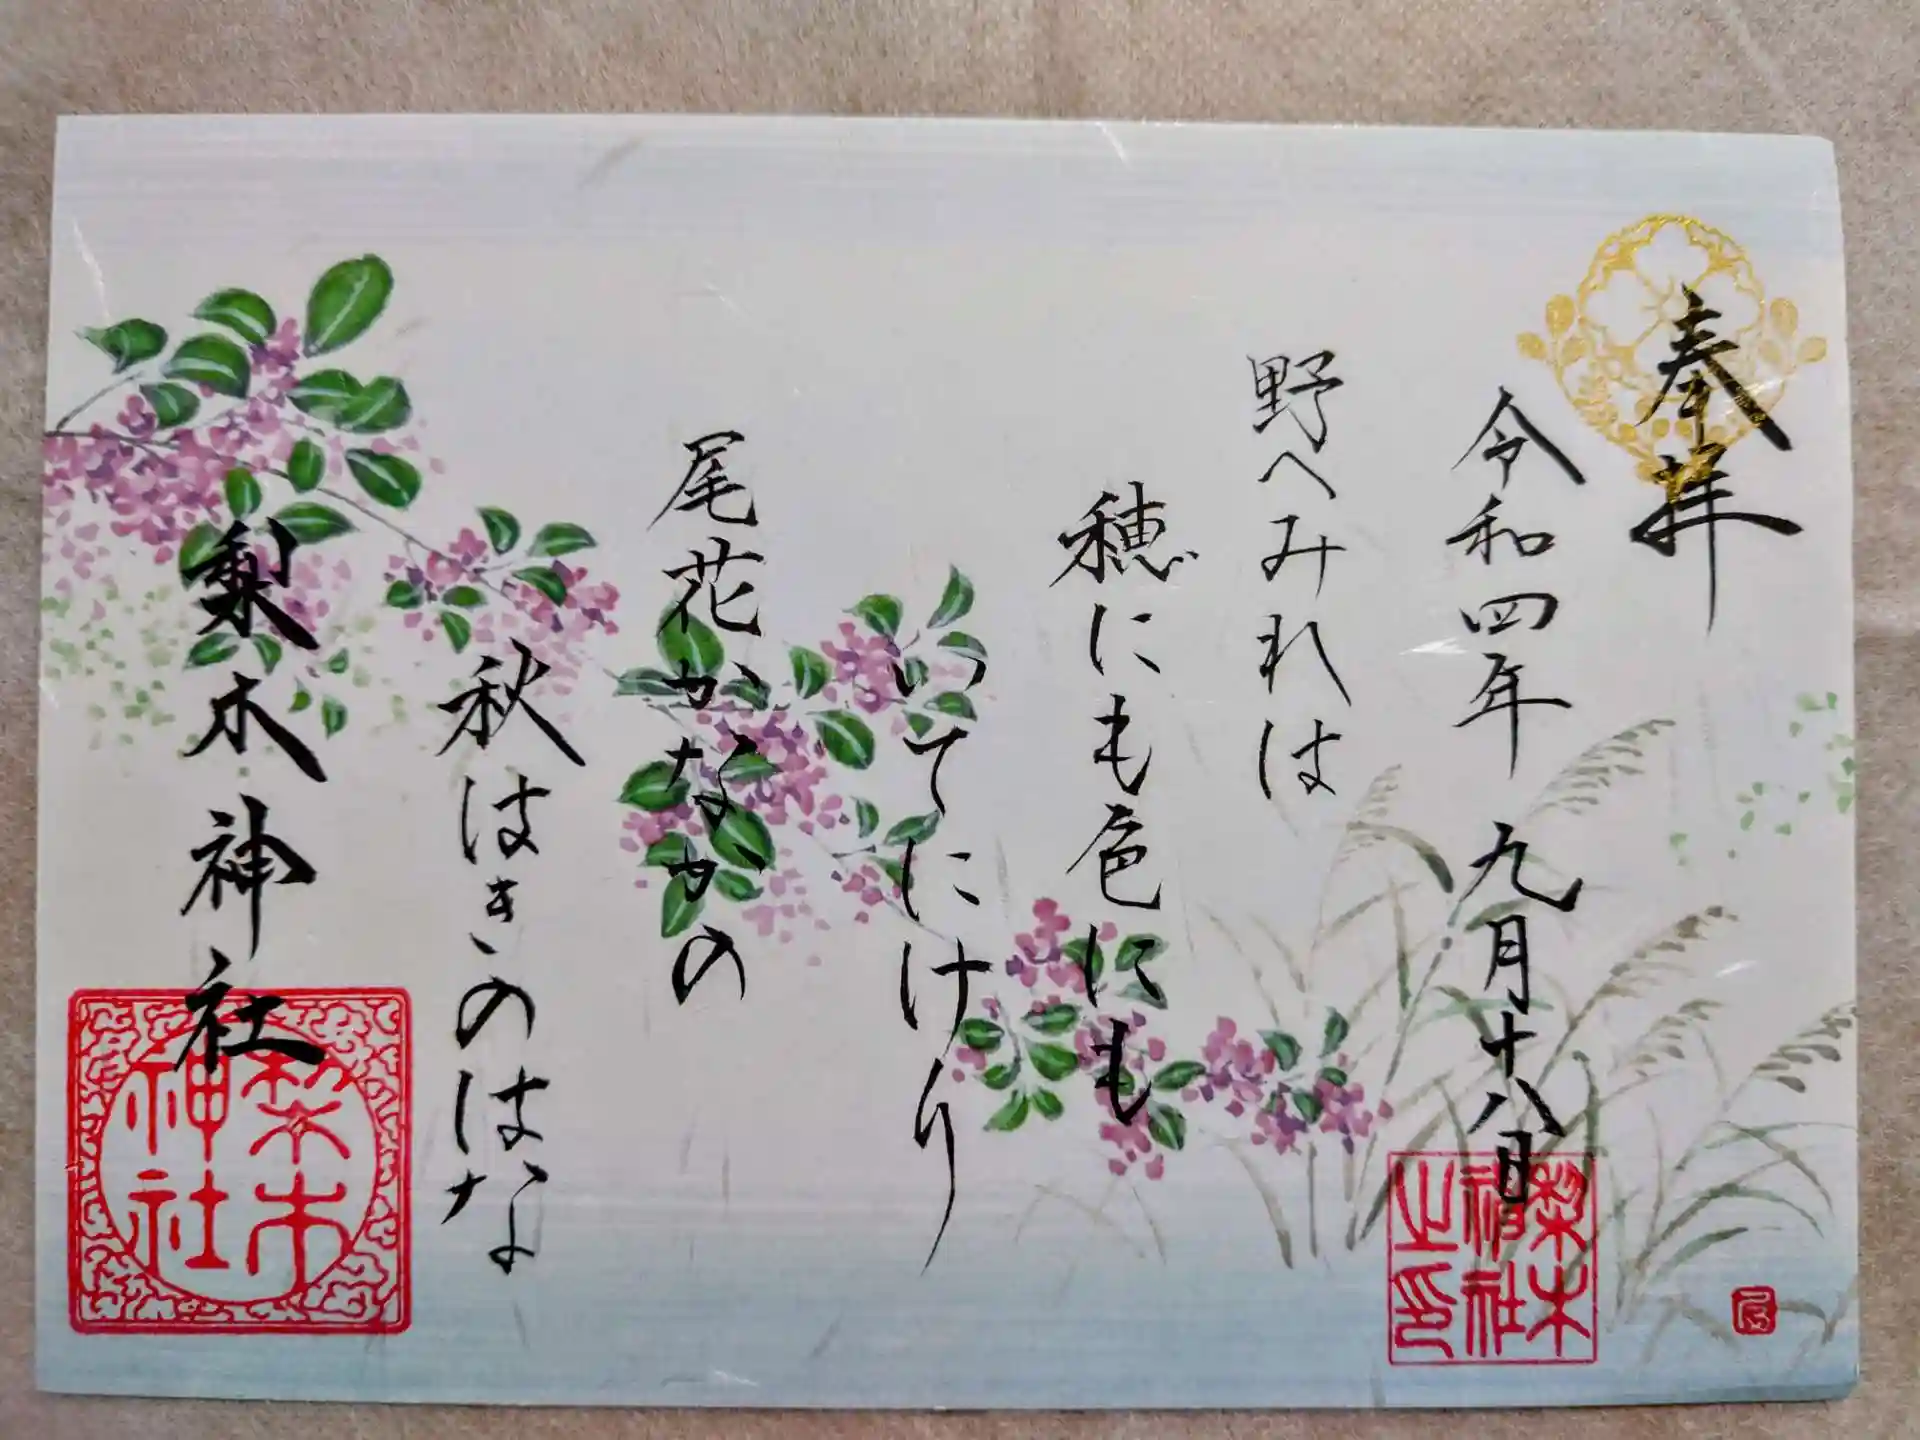 奉拝
令和四年 九月十八日
野へみれは
穂にも色にも
いてにけり
尾花かなかの
秋はきのはな
梨木神社
梨木神社
梨木神社之印